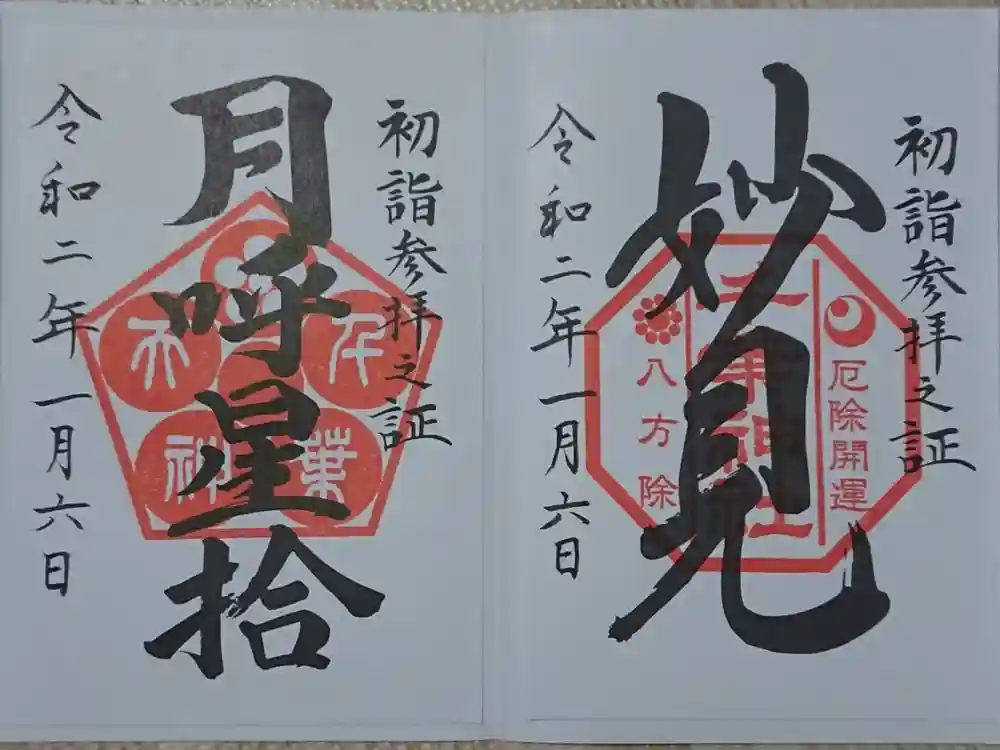 初詣参拝之証
妙見
厄除開運
八方除
令和二年一月六日
初詣参拝之証
月呼星拾
千葉神社
令和二年一月六日